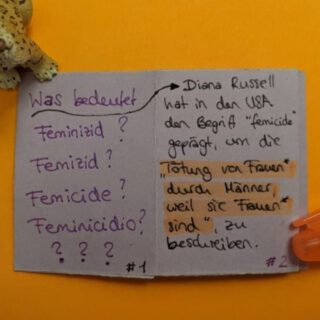 Was bedeutet
Feminizid?
Femizid?
Femicide?
Feminicidio?
? ? ?
#1
Diana Russell
hat in den USA
den Begriff "femicide"
geprägt, um die
„Tötung von Frauen*
durch Männer,
weil sie Frauen*
sind", zu
beschreiben.
#2